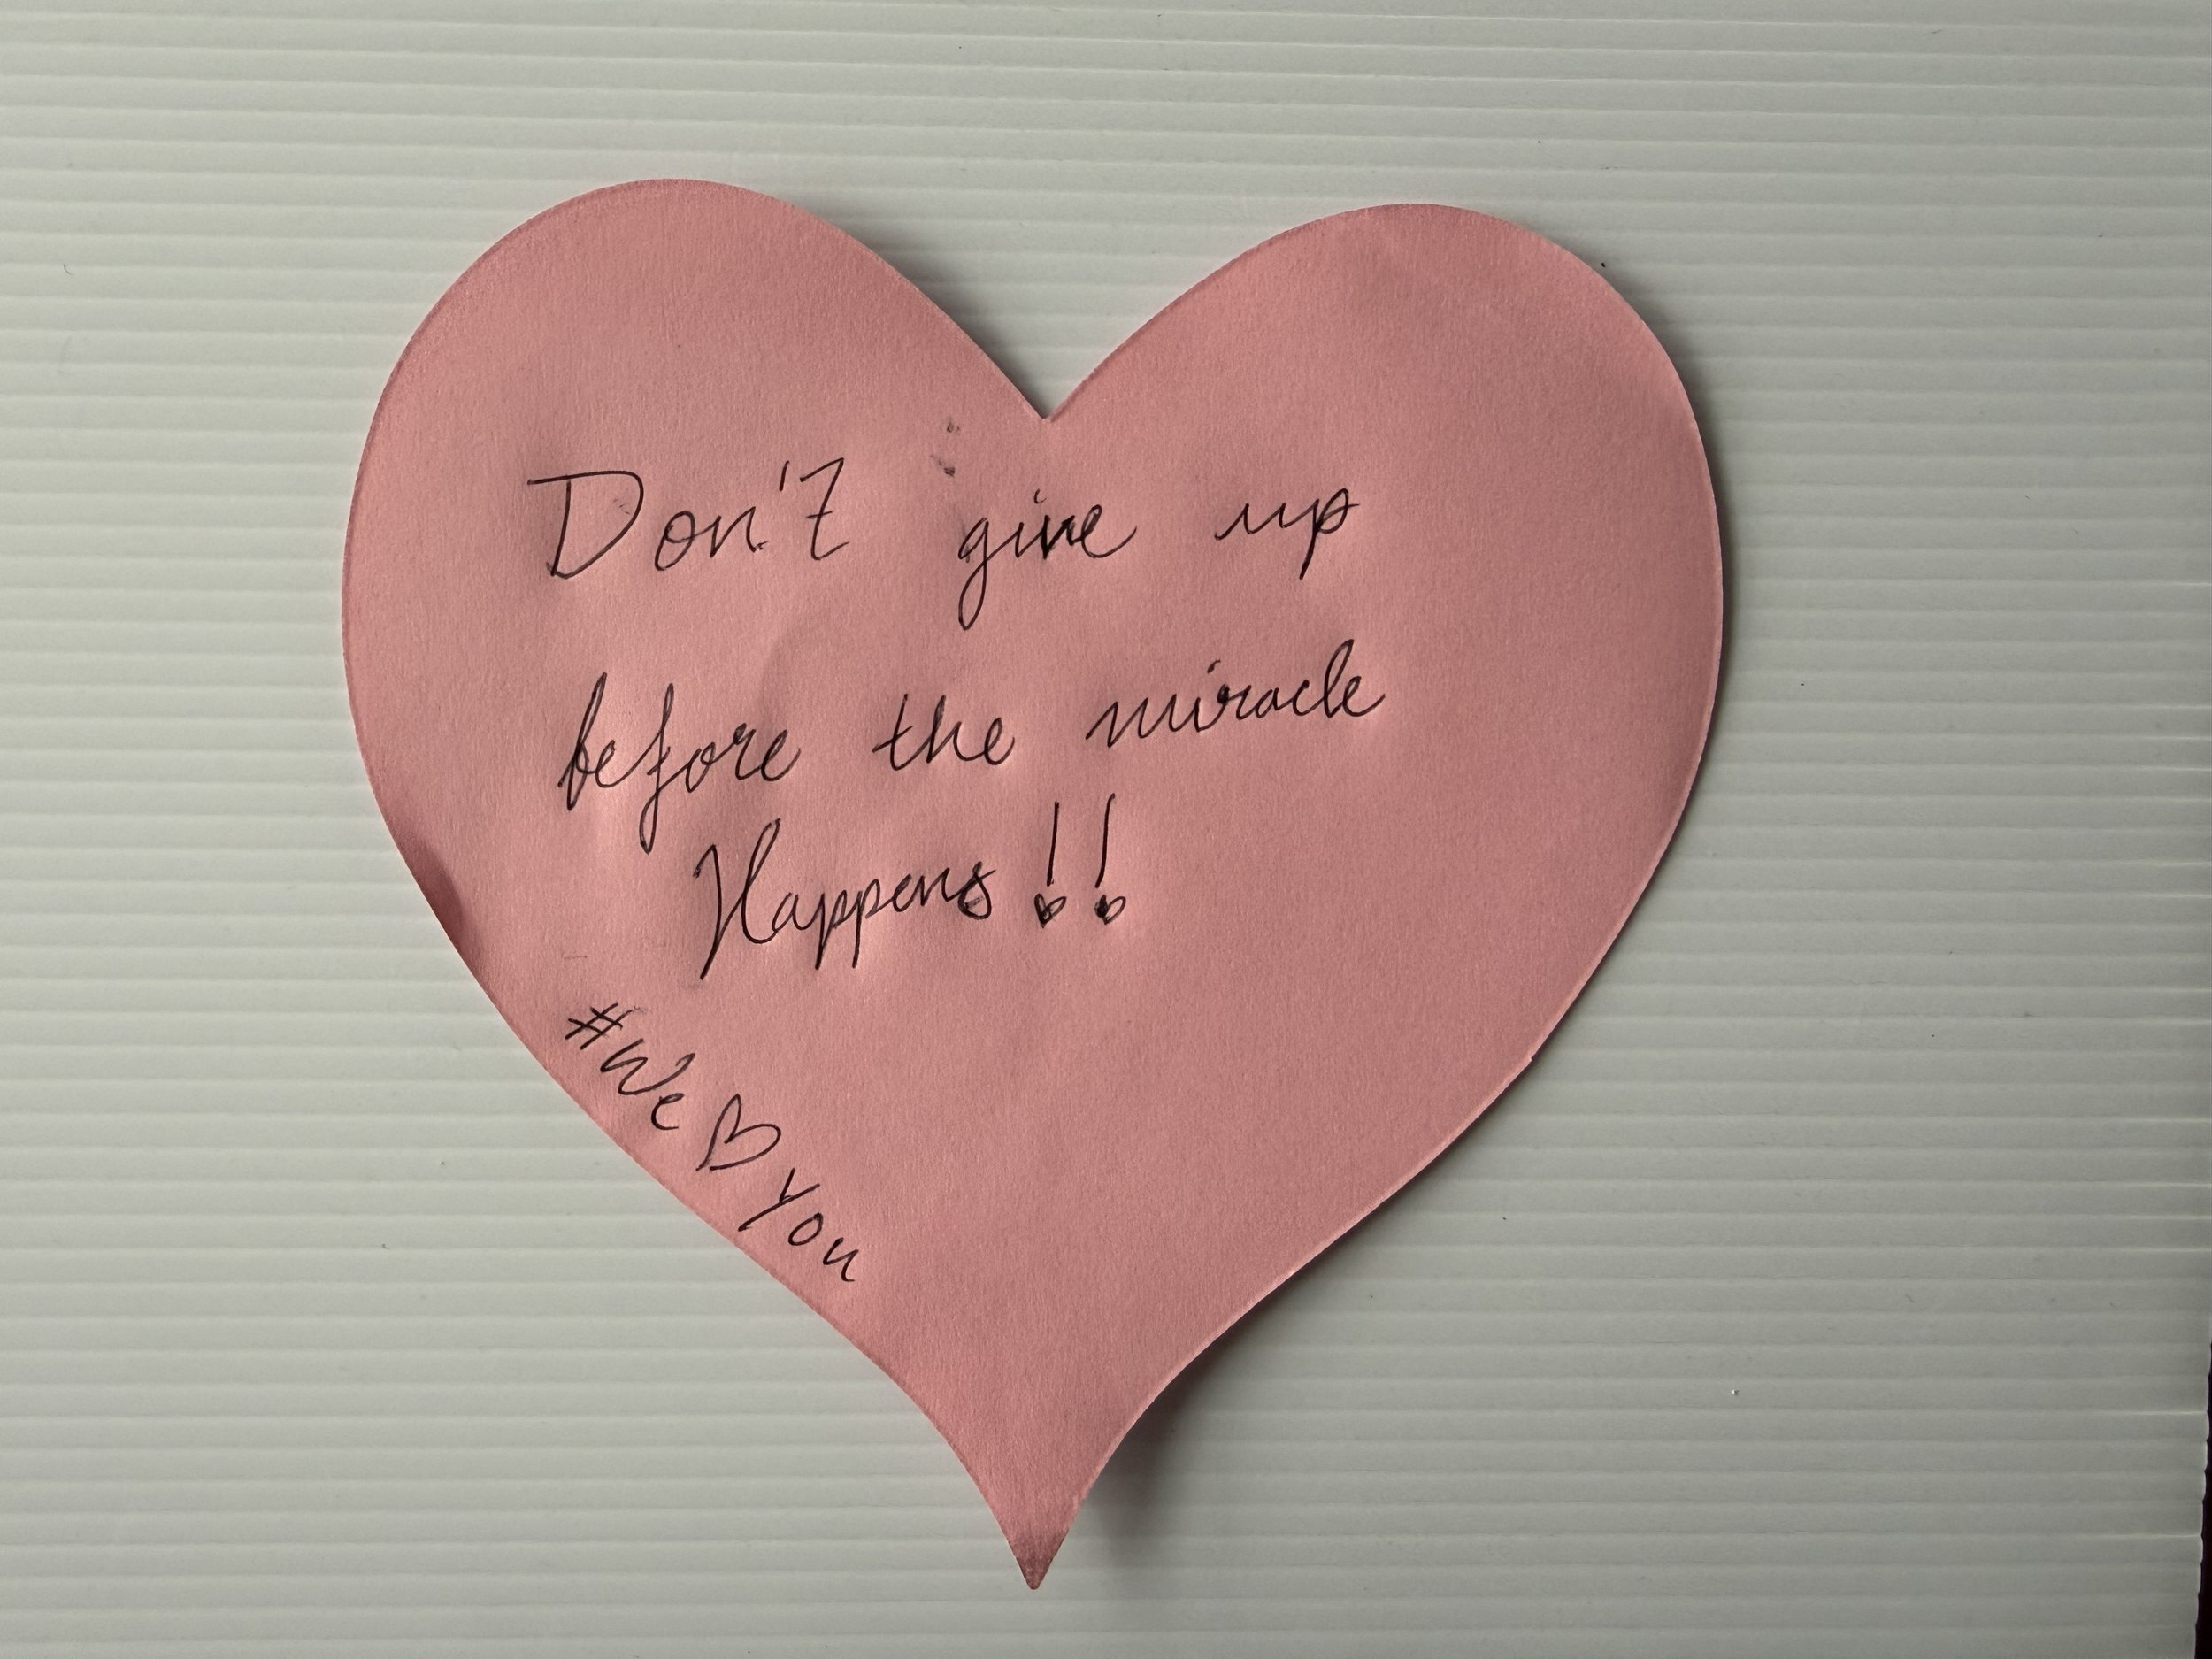 Don't give up
before the miracle
Happens!!
#We♡you